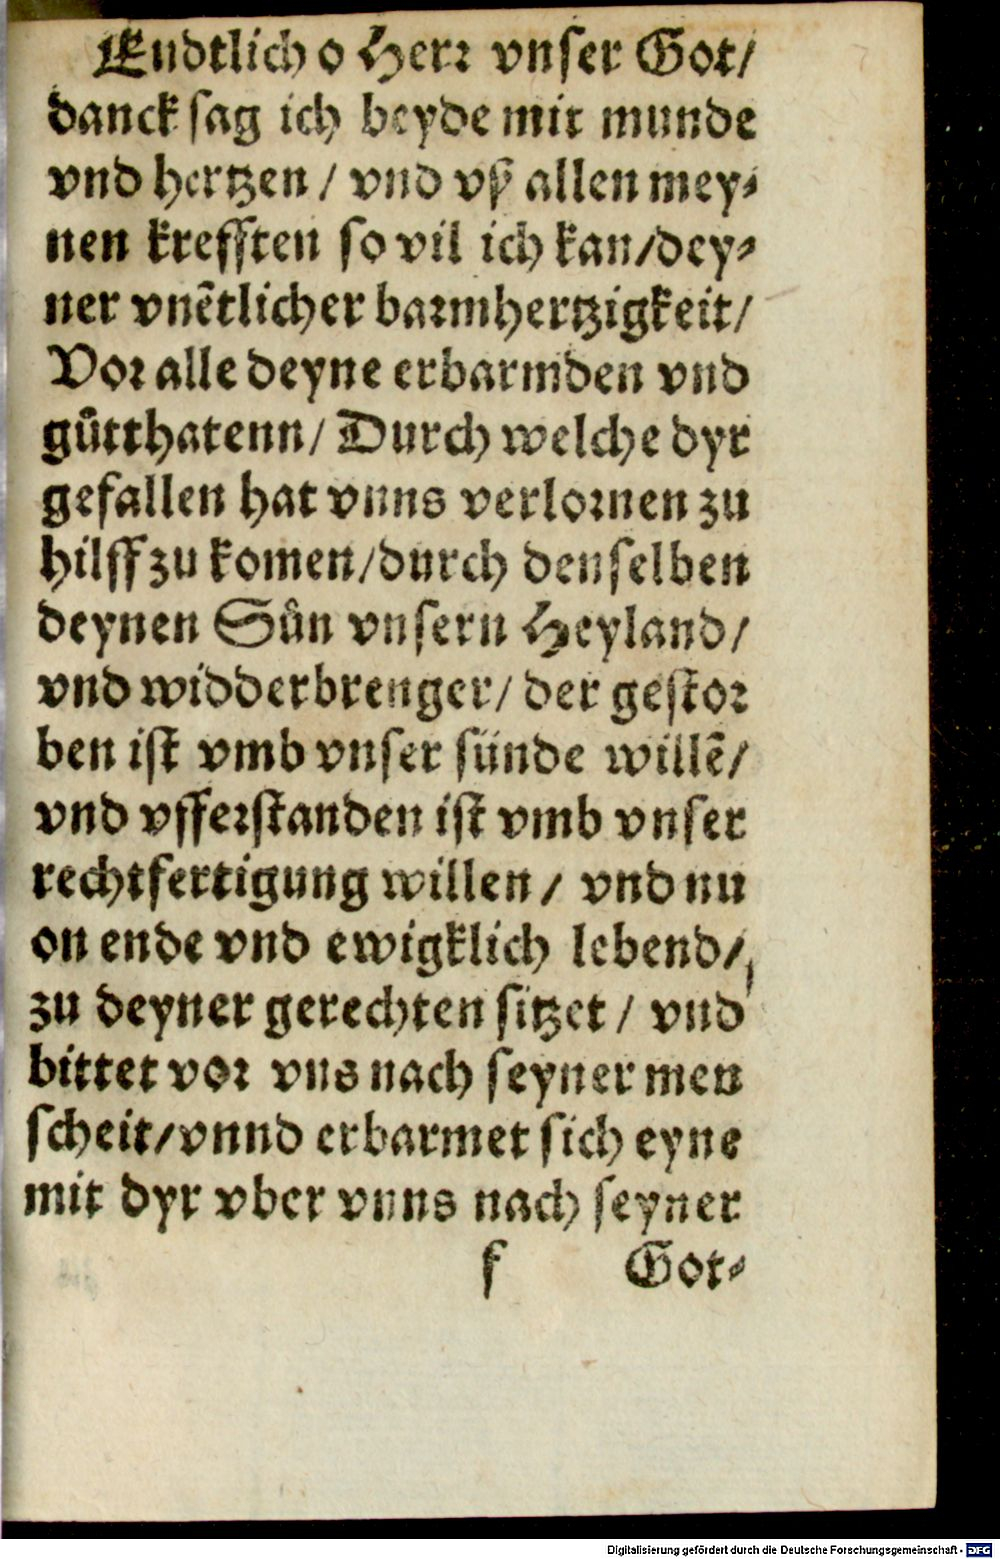 Endtlich o Herꝛ vnſer Got/
danck ſag ich beyde mit munde
vnd hertzen / vnd vſz allen mey⸗
nen krefften ſo vil ich kan/dey⸗
ner vnẽtlicher baꝛmhertzigkeit/
Voꝛ alle deyne erbarmden vnd
gůtthatenn/ Durch welche dyr
gefallen hat vnns verloꝛnen zu
hilff zu komen/durch denſelben
deynen Sůn vnſern Heyland/
vnd widderbrenger/ der geſtoꝛ
ben iſt vmb vnſer ſünde willẽ/
vnd vffeꝛſtanden iſt vmb vnſer
rechtfertigung willen / vnd nu
on ende vnd ewigklich lebend/
zu deyner gerechten ſitzet / vnd
bittet voꝛ vns nach ſeyner men
ſcheit/vnnd erbarmet ſich eyne
mit dyr vber vnns nach ſeyner
f Got⸗
Digitalisierung gefördert durch die Deutsche Forschungsgemeinschaft - DFG